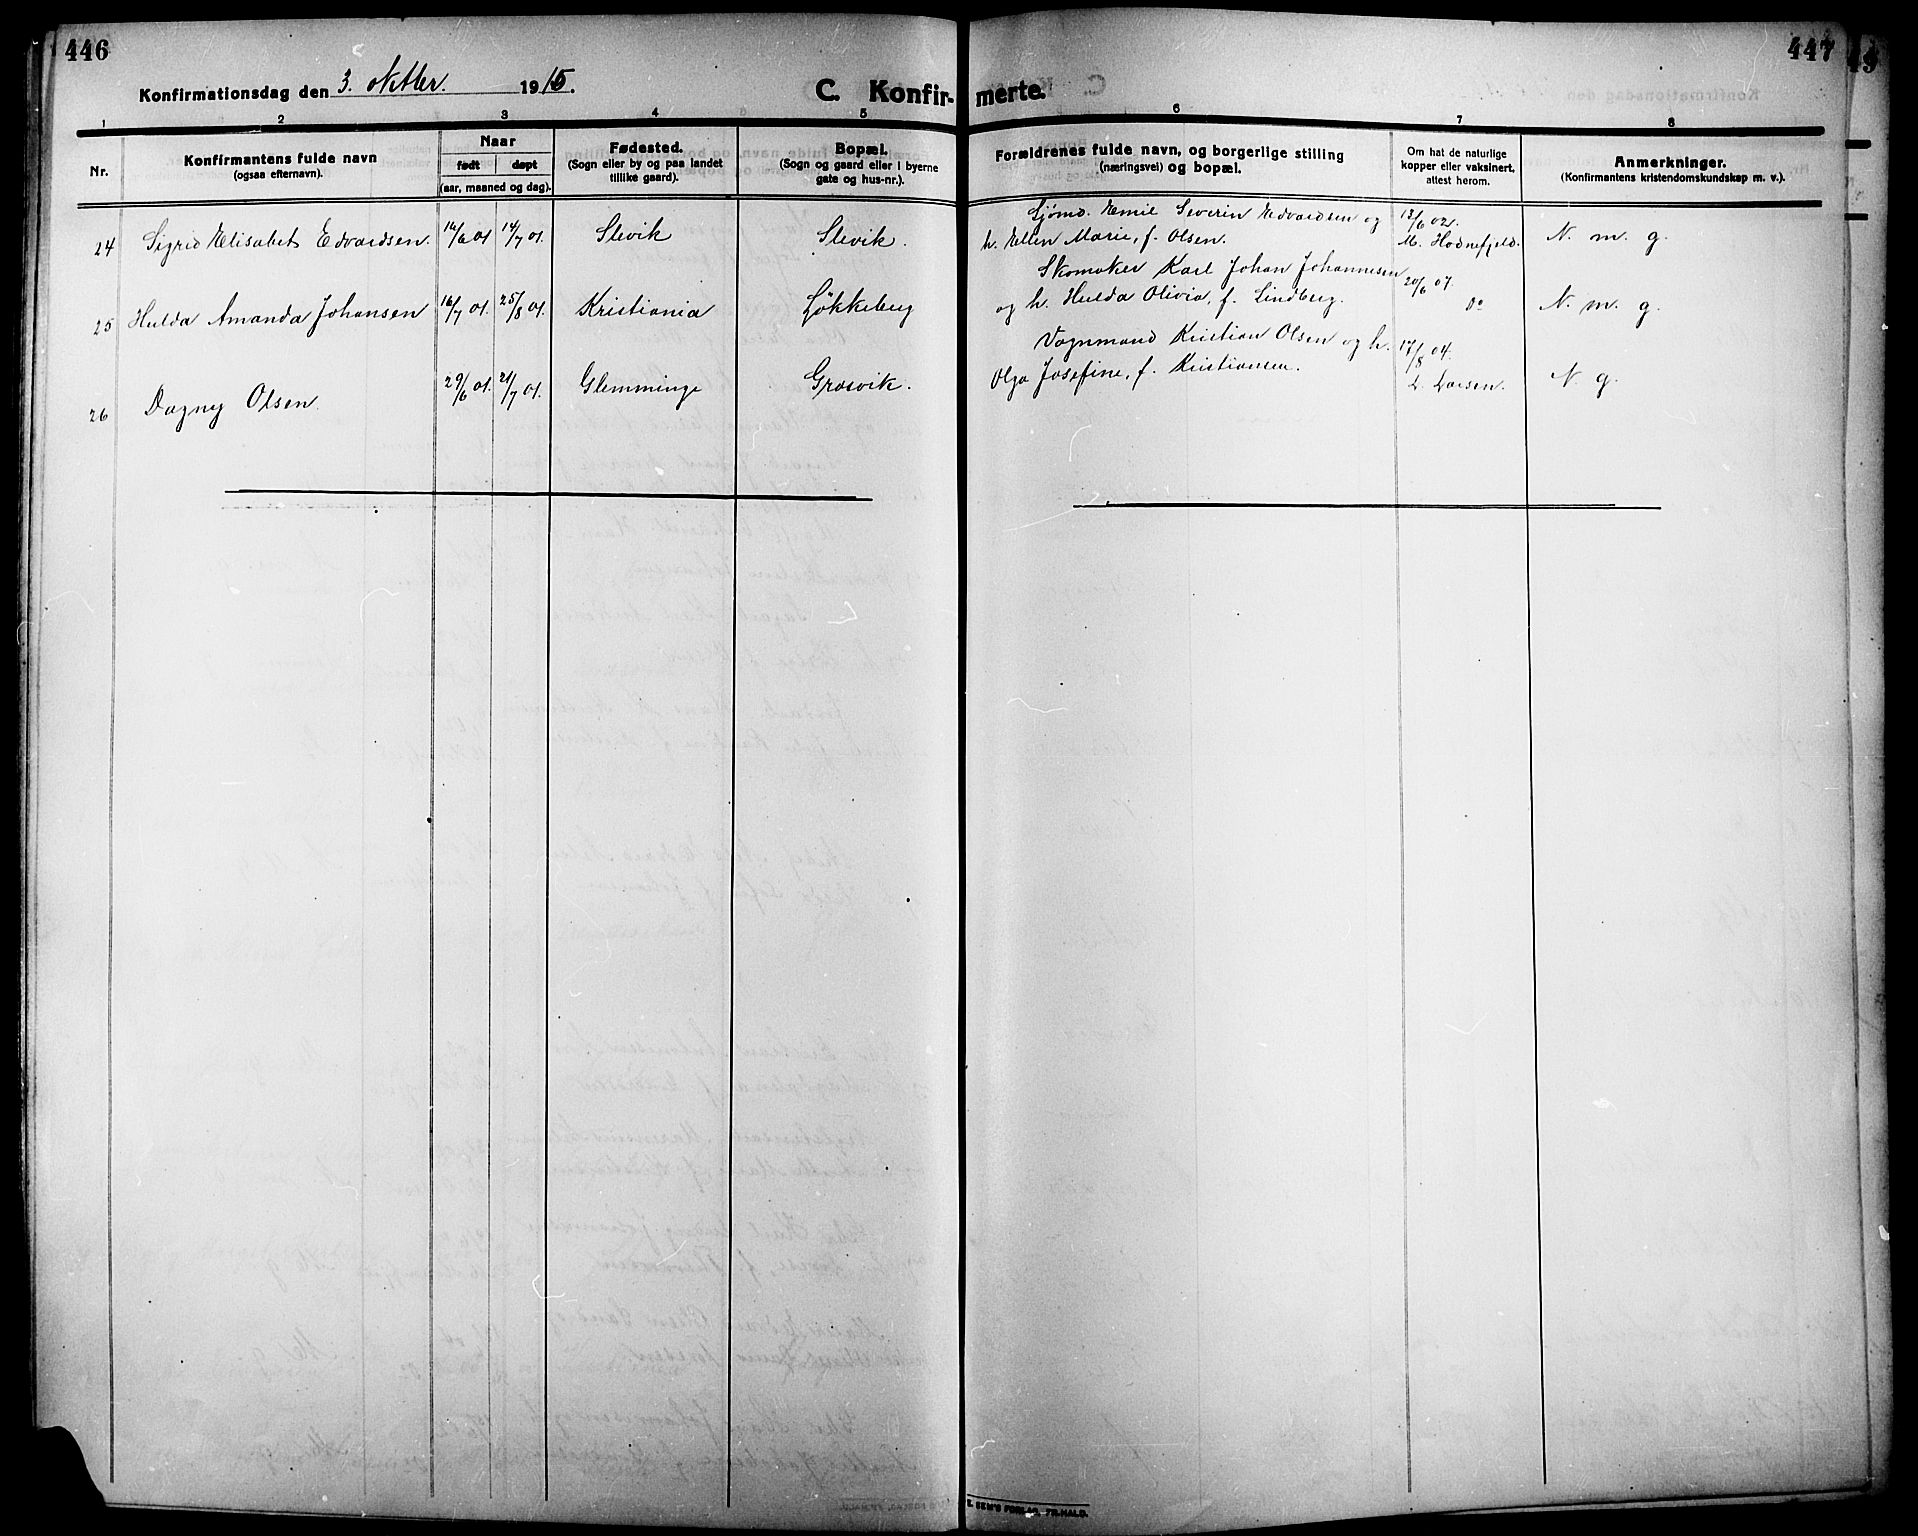 446
447
Konfirmationsdag den 3. oktber. 1915.
C. Konfir- merte.
1 2 3 4 5 6 7 8
Nr.
Konfirmantens fulde navn
(ogsaa efternavn).
Naar
født døpt
(aar, maaned og dag).
Fødested.
(Sogn eller by og paa landet
tillike gaard).
Bopæl.
(Sogn og gaard eller i byerne
gate og hus-nr.).
Forældrenes fulde navn, og borgerlige stilling
(næringsvei) og bopæl.
Om hat de naturlige
kopper eller vaksinert,
attest herom.
Anmerkninger.
(Konfirmantens kristendomskundskap m. v.).
24 Sigrid Elisabet Edvardsen. 14/7 01. Slevik Slevik.
Sjömd. Emil Severin Edvardsen og
h. Ellen Marie, f. Olsen.
13/6 02.
M. Hodnefjeld.
N. m. g.
25 Hulda Amanda Johansen 16/7 01. 25/8 01. Kristiania Løkkeberg
Skomaker Karl Johan Johannesen
og h. Hulda Olivia, f. Lindberg.
20/6 07.
do
N. m. g.
26 Dagny Olsen. 29/6 01. 21/7 01. Glemminge Grosvik.
Vognmand Kristian Olsen og h.
Olga Josefine, f. Kristiansen.
17/8 04.
L. Larsen.
N. g.